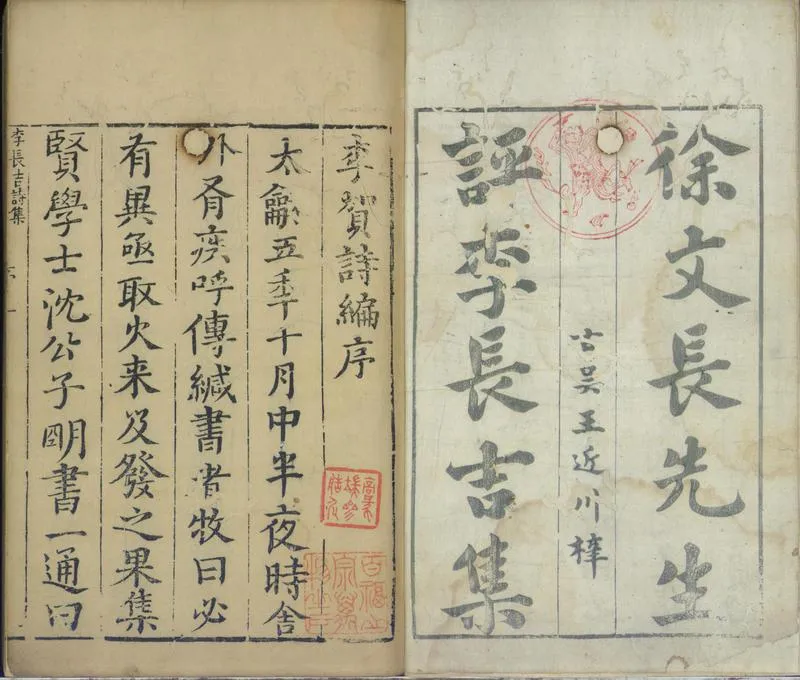 徐文長先生
古吳王近川梓
評李長吉集
李賀詩編序
太龢五秊十月中半夜時舍
外有疾呼傳緘書者牧曰必
有異亟取火来及發之果集
賢學士沈公子明書一通曰
李長吉詩集